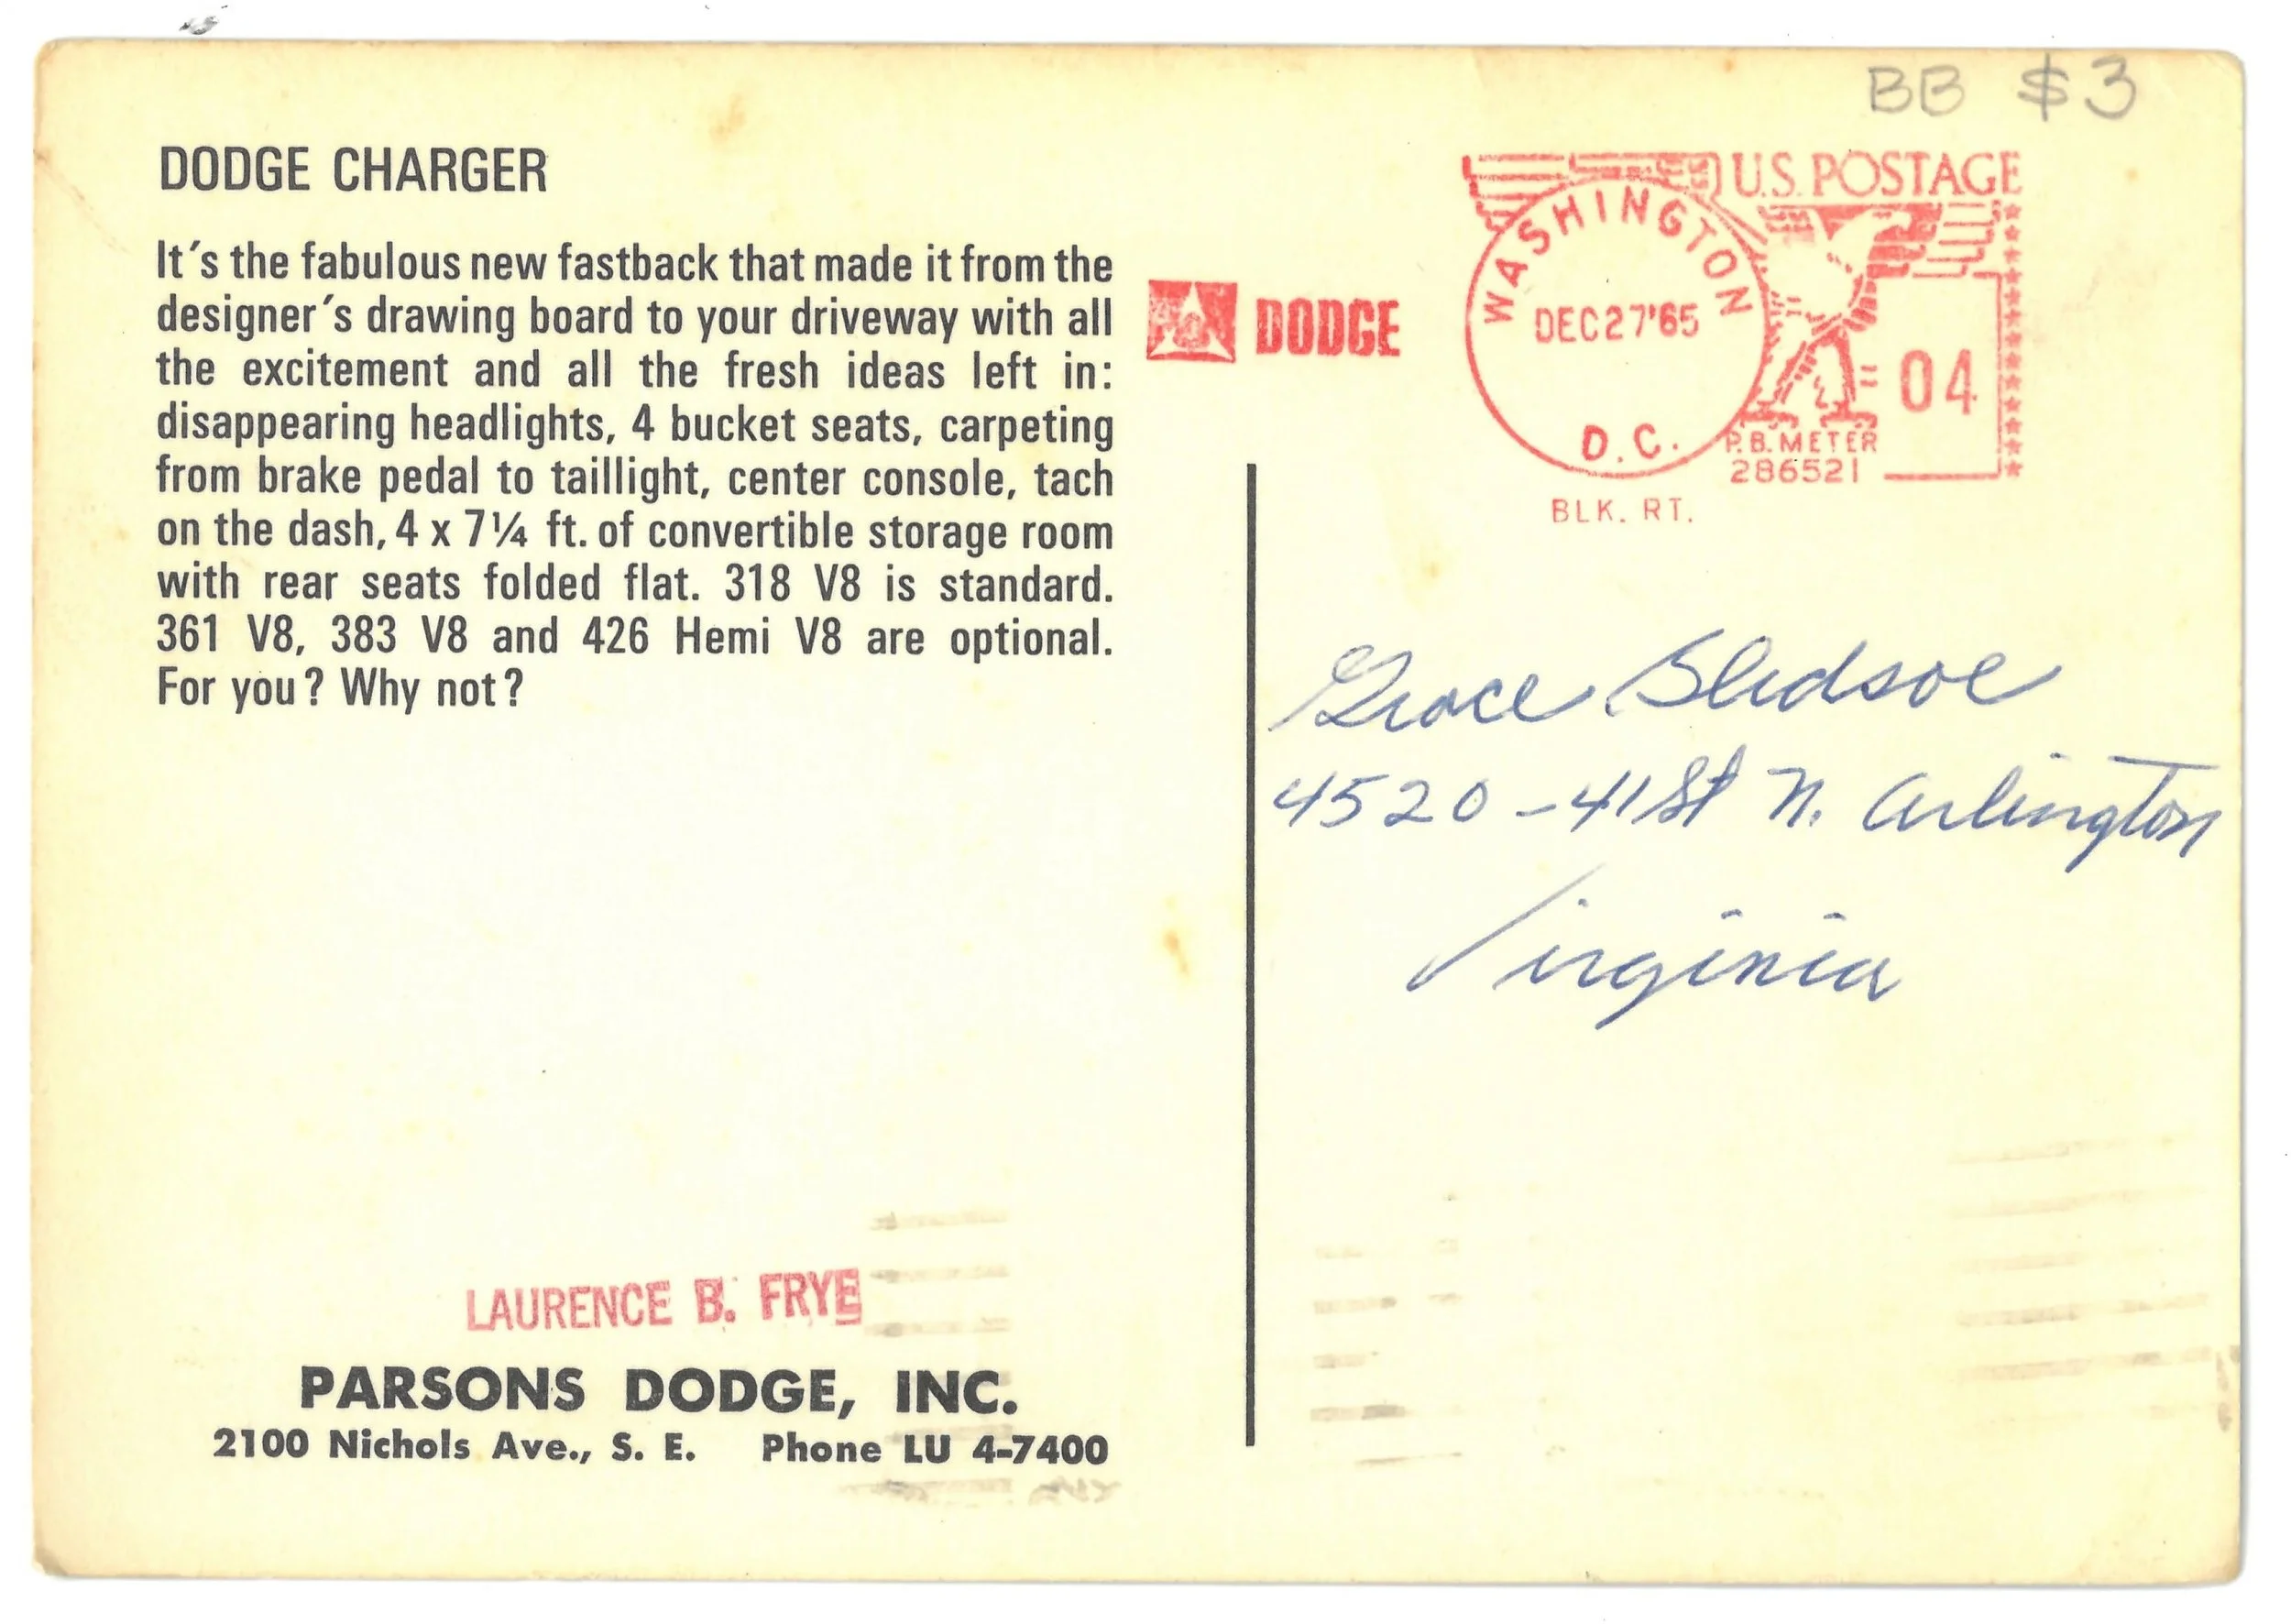 BB $3
DODGE CHARGER
It's the fabulous new fastback that made it from the
designer's drawing board to your driveway with all
the excitement and all the fresh ideas left in:
disappearing headlights, 4 bucket seats, carpeting
from brake pedal to taillight, center console, tach
on the dash, 4 x 7¼ ft. of convertible storage room
with rear seats folded flat. 318 V8 is standard.
361 V8, 383 V8 and 426 Hemi V8 are optional.
For you? Why not?
LAURENCE B. FRYE
PARSONS DODGE, INC.
2100 Nichols Ave., S. E. Phone LU 4-7400
DODGE
WASHINGTON
DEC27'65
D.C.
U.S. POSTAGE
04
P.B. METER
286521
BLK. RT.
Grace Bledsoe
4520 - 41 St N. Arlington
Virginia